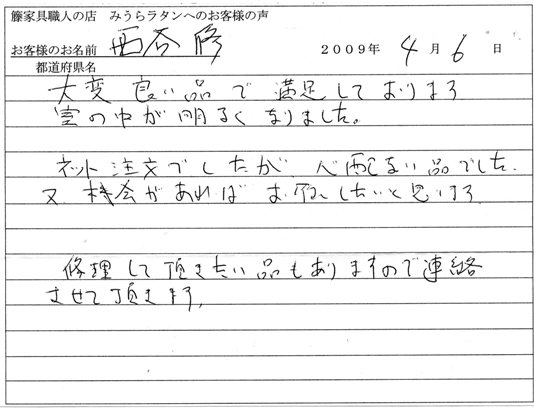 籐家具職人の店 みうらラタンへのお客様の声
お客様のお名前 西谷 修 2009年 4月 6日
都道府県名
大変良い品で満足しております
室の中が明るくなりました。
ネット注文でしたが、心配ない品でした。
又機会があればお願いしたいと思います。
修理して頂きたい品もありますので連絡
させて頂きます。